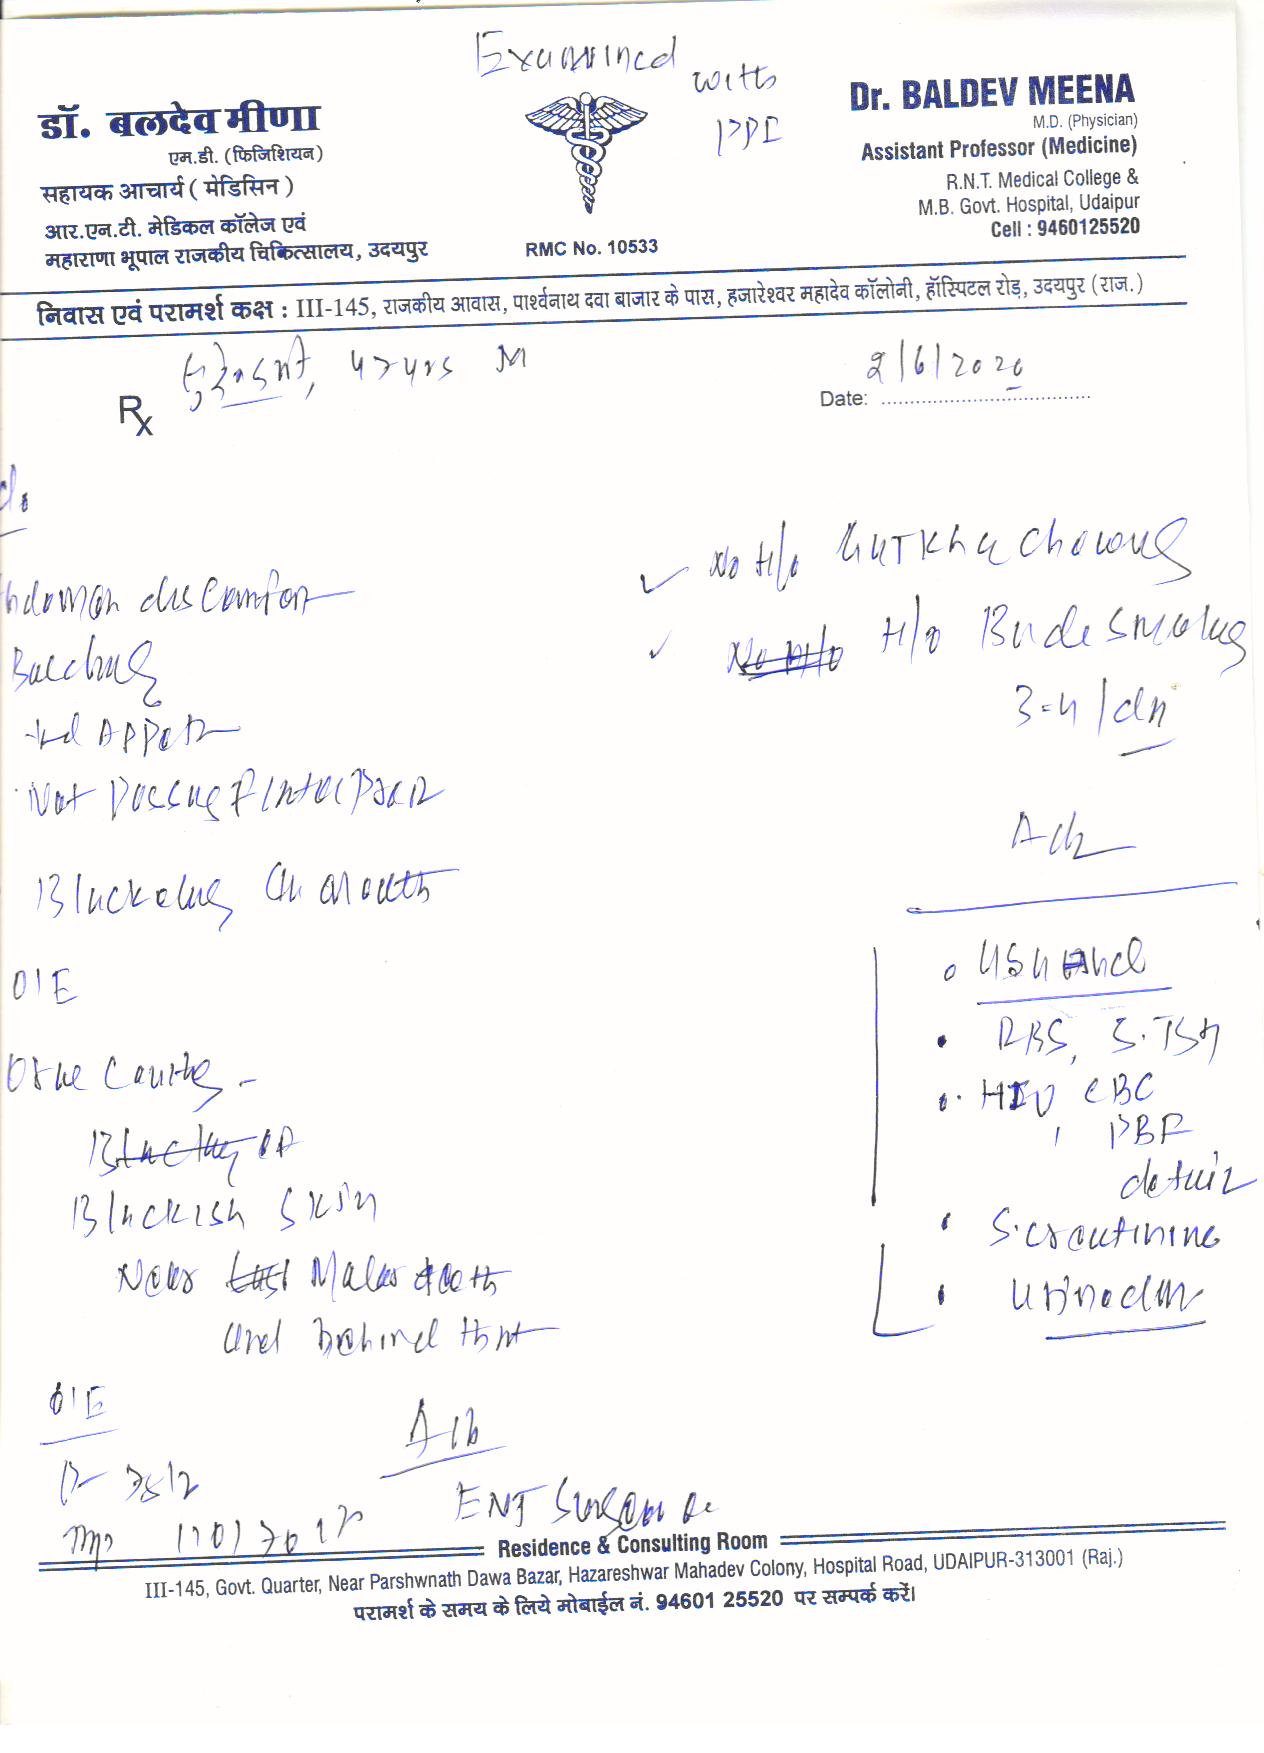 Examined
with
PPE
डॉ. बलदेव मीणा
एम.डी. (फिजिशियन)
सहायक आचार्य ( मेडिसिन )
आर.एन.टी. मेडिकल कॉलेज एवं
महाराणा भूपाल राजकीय चिकित्सालय, उदयपुर
RMC No. 10533
Dr. BALDEV MEENA
M.D. (Physician)
Assistant Professor (Medicine)
R.N.T. Medical College &
M.B. Govt. Hospital, Udaipur
Cell : 9460125520
निवास एवं परामर्श कक्ष : III-145, राजकीय आवास, पार्श्वनाथ दवा बाजार के पास, हजारेश्वर महादेव कॉलोनी, हॉस्पिटल रोड़, उदयपुर (राज.)
yrs M
Rx
Date: 2/6/2020
No H/o Gutkha Chewing
H/o Bidi Smoking
3-4/d
Adv
Abdomen discomfort
Belching
Appetite
Not Passing
Blackening in mouth
O/E
Oral Cavity -
Blackish Skin
Near Molar teeth
and behind that
O/E
Adv
ENT Surgeon
USG Abd
RBS, S.TSH
HIV, CBC
PBF
detail
S.creatinine
Urine
Residence & Consulting Room
III-145, Govt. Quarter, Near Parshwnath Dawa Bazar, Hazareshwar Mahadev Colony, Hospital Road, UDAIPUR-313001 (Raj.)
परामर्श के समय के लिये मोबाईल नं. 94601 25520 पर सम्पर्क करें।